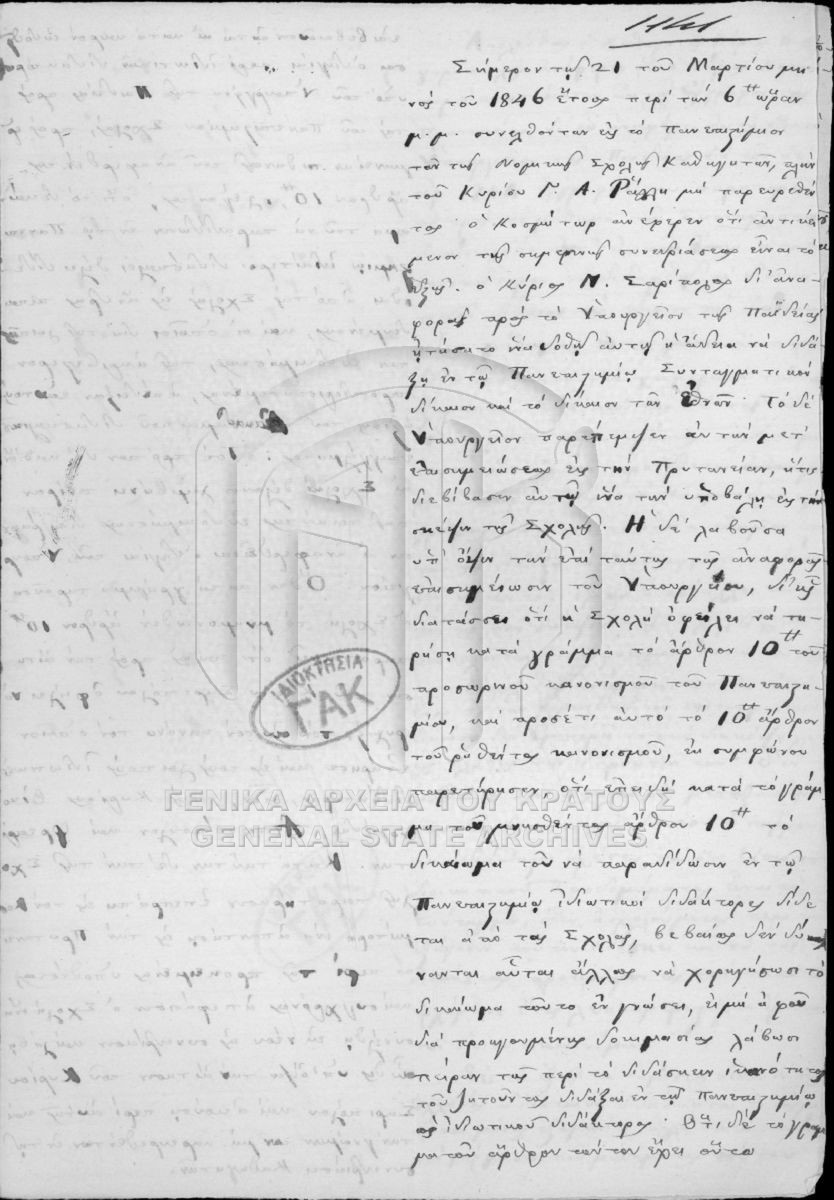 Σήμερον τῇ 21 τοῦ Μαρτίου μη-
νός τοῦ 1846 ἔτους περί τήν 6ην ὥραν
μ.μ. συνελθόντων εἰς τό Πανεπιστήμιον
τῶν τῆς Νομικῆς Σχολῆς Καθηγητῶν, πλήν
τοῦ Κυρίου Γ. Α. Ράλλη μή παρευρεθέν
τος ὁ Κοσμήτωρ ἀνέφερεν ὅτι ἀντικεί
μενον τῆς σημερινῆς συνεδριάσεως εἶναι τό
ἑξῆς. ὁ Κύριος Ν. Σαρίπολος δι' ἀνα-
φορᾶς πρός τό Ὑπουργεῖον τῆς Παιδείας
ᾐτήσατο ἵνα δοθῇ αὐτῷ ἡ ἄδεια νά διδά
ξῃ ἐν τῷ Πανεπιστημίῳ Συνταγματικόν
δίκαιον καί τό δίκαιον τῶν Ἐθνῶν. Τό δέ
Ὑπουργεῖον παρέπεμψεν αὐτήν μετ'
ἐπισημειώσεως εἰς τήν Πρυτανείαν, ἥτις
διεβίβασεν αὐτῷ ἵνα τήν ὑποβάλῃ εἰς τήν
σκέψιν τῆς Σχολῆς. Ἡ δέ λαβοῦσα
ὑπ' ὄψιν τήν ἐπί ταύτης τῆς ἀναφορᾶς
ἐπισημείωσιν τοῦ Ὑπουργείου, δι' ἧς
διατάσσει ὅτι ἡ Σχολή ὀφείλει νά τη-
ρήσῃ κατά γράμμα τό ἄρθρον 10ον τοῦ
προσωρινοῦ κανονισμοῦ τοῦ Πανεπιστη-
μίου, καί προσέτι αὐτό τό 10ον ἄρθρον
τοῦ ῥηθέντος κανονισμοῦ, ἐκ συμφώνου
παρετήρησεν, ὅτι ἐπειδή κατά τό γράμ
μα τοῦ μνησθέντος ἄρθρου 10ου τό
δικαίωμα τοῦ νά παραδίδωσιν ἐν τῷ
Πανεπιστημίῳ ἰδιωτικοί διδάκτορες δίδε
ται ἀπό τάς Σχολάς, βεβαίως δέν δύ
νανται αὗται ἄλλως νά χορηγήσωσι τό
δικαίωμα τοῦτο ἐν γνώσει, εἰμή ἀφοῦ
διά προηγουμένης δοκιμασίας λάβωσι
πεῖραν τῆς περί τό διδάσκειν ἱκανότητος
τοῦ ζητοῦντος διδάξαι ἐν τῷ Πανεπιστημίῳ
ὡς ἰδιωτικοῦ διδάκτορος. Ὅτι δέ τό γράμ
μα τοῦ ἄρθρου τούτου ἔχει οὕτω
ΙΔΙΟΚΤΗΣΙΑ
ΓΑΚ
ΓΕΝΙΚΑ ΑΡΧΕΙΑ ΤΟΥ ΚΡΑΤΟΥΣ
GENERAL STATE ARCHIVES